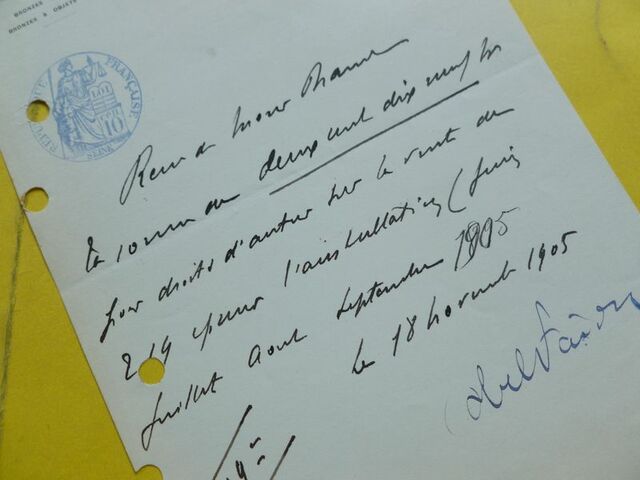 BRONZES
BRONZES & OBJETS
RÉPUBLIQUE FRANÇAISE
10
Reçu de Monsieur
la somme de deux cent dix neuf frs
pour droits d'auteur sur la vente de
219 l'installation (Juin
Juillet Aout Septembre 1905
le 18 novembre 1905